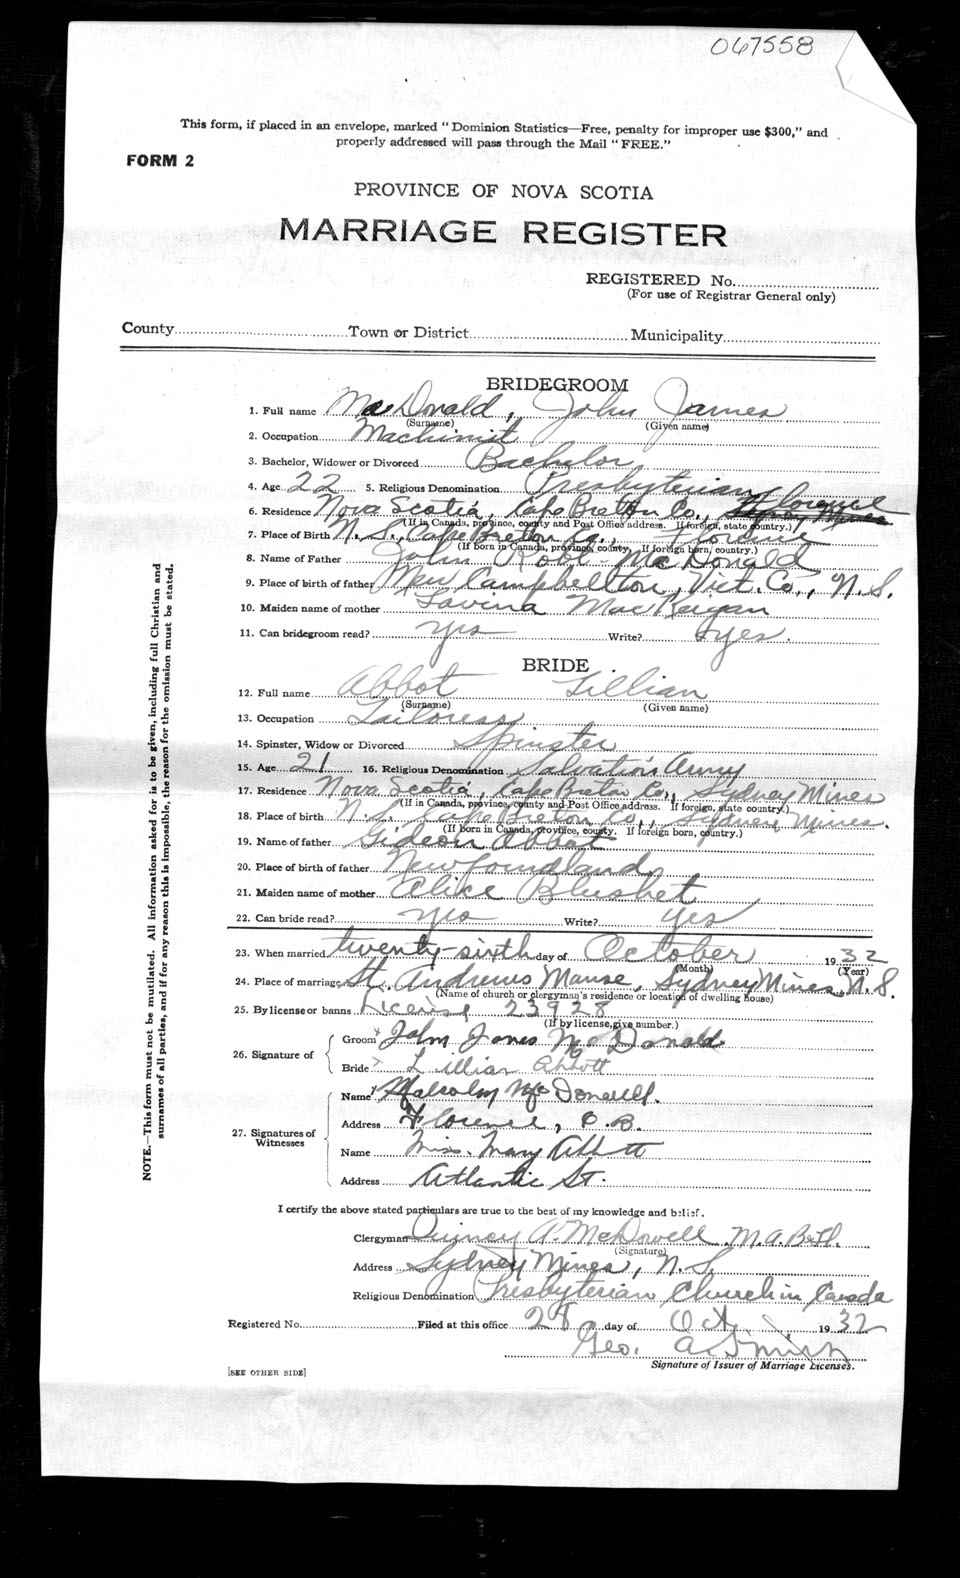 067558
This form, if placed in an envelope, marked "Dominion Statistics—Free, penalty for improper use $300," and
properly addressed will pass through the Mail "FREE."
FORM 2
PROVINCE OF NOVA SCOTIA
MARRIAGE REGISTER
REGISTERED No.
(For use of Registrar General only)
County Town or District Municipality
BRIDEGROOM
1. Full name MacDonald, John James
(Surname) (Given name)
2. Occupation Machinist
3. Bachelor, Widower or Divorced Bachelor
4. Age 22 5. Religious Denomination Presbyterian
6. Residence Nova Scotia, Cape Bretton Co., Florence
(If in Canada, province, county and Post Office address. If foreign, state country.)
7. Place of Birth N.S., Cape Breton Co., Florence
(If born in Canada, province, county. If foreign born, country.)
8. Name of Father John Robt. MacDonald
9. Place of birth of father New Campbellton, Vict. Co., N.S.
10. Maiden name of mother Lavina MacKeigan
11. Can bridegroom read? yes Write? yes.
BRIDE
12. Full name Abbot Lillian
(Surname) (Given name)
13. Occupation Tailoress
14. Spinster, Widow or Divorced Spinster
15. Age 21 16. Religious Denomination Salvation Army
17. Residence Nova Scotia, Cape Breton Co., Sydney Mines
(If in Canada, province, county and Post Office address. If foreign, state country.)
18. Place of birth N.S. Cape Breton Co., Sydney Mines.
(If born in Canada, province, county. If foreign born, country.)
19. Name of father Gideon Abbot
20. Place of birth of father Newfoundland
21. Maiden name of mother Alice Blushet
22. Can bride read? yes Write? yes
23. When married twenty-sixth day of October 1932
(Month) (Year)
24. Place of marriage St. Andrews Manse, Sydney Mines, N.S.
(Name of church or clergyman's residence or location of dwelling house)
25. By license or banns License 23928
(If by license, give number.)
26. Signature of Groom John James McDonald
Bride Lillian Abbott
27. Signatures of Witnesses
Name Malcolm
Address Florence, C.B.
Name Miss. Mary Abbott
Address Atlantic St.
I certify the above stated particulars are true to the best of my knowledge and belief.
Clergyman Quincy A. McDowell M.A. B.th.
(Signature)
Address Sydney Mines, N.S.
Religious Denomination Presbyterian Church in Canada
Registered No. Filed at this office 28 day of Oct 1932
Geo. A. Smith
Signature of Issuer of Marriage Licenses.
[SEE OTHER SIDE]
NOTE.—This form must not be mutilated. All information asked for is to be given, including full Christian and
surnames of all parties, and if for any reason this is impossible, the reason for the omission must be stated.